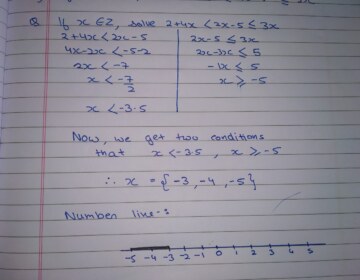 Q. If x ∈ Z, solve 2+4x < 2x-5 ≤ 3x
2+4x < 2x-5
4x-2x < -5-2
2x < -7
x < -7/2
x < -3.5
2x-5 ≤ 3x
2x-3x ≤ 5
-1x ≤ 5
x ≥ -5
Now, we get two conditions
that x < -3.5 , x ≥ -5
∴ x = {-3, -4, -5}
Number line-:
-5 -4 -3 -2 -1 0 1 2 3 4 5